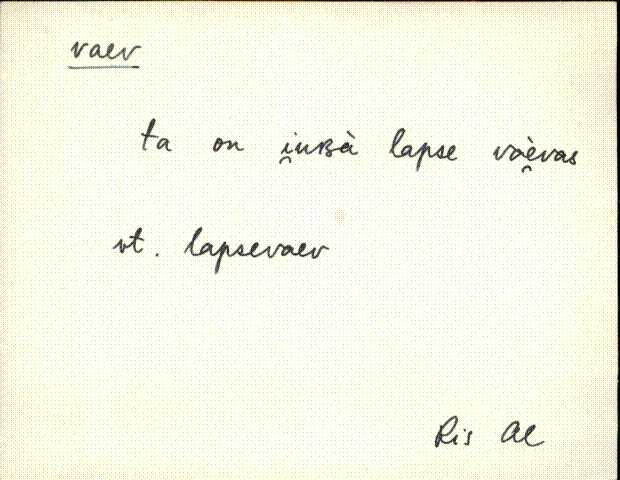 vaev
ta on i̯uʙà lapse vaè̯vas
vt. lapsevaev
Ris Al